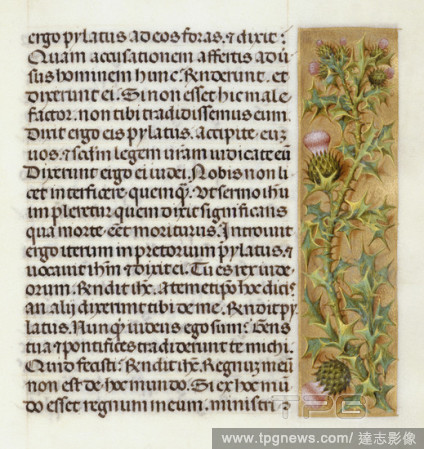 ergo pylatus ad eos foras. ⁊ dixit:
Quam accusationem affertis adũ
sus hominem hunc. Rñderunt. et
dixerunt ei. Si non esset hic male
factor. non tibi tradidissemus eum.
Dixit ergo eis pylatus. accipite eũ
vos. ⁊ scdm̃ legem vrãm iudicate eũ
Dixerunt ergo ei iudei. Nobis non li
cet interficere quemq̃. Vt sermo ihũ
impleretur quem dixit significans
qua morte eẽt moriturus. Introiuit
ergo iterum in pretorium pylatus. ⁊
vocauit ihm̃ ⁊ dixit ei. Tu es rex iude
orum. Rendit ihc̃. A temetipo hoc dicis
an alij dixerunt tibi de me. Rendit py
latus. Nunq̃ iudeus ego sum: Gens
tua ⁊ pontifices tradiderunt te michi.
Quid fecisti: Rendit ihc̃. Regnũ meũ
non est de hoc mundo. Si ex hoc mũ
do esset regnum meum. ministri ⁊
TPG
www.tpgnews.com/ 達志影像